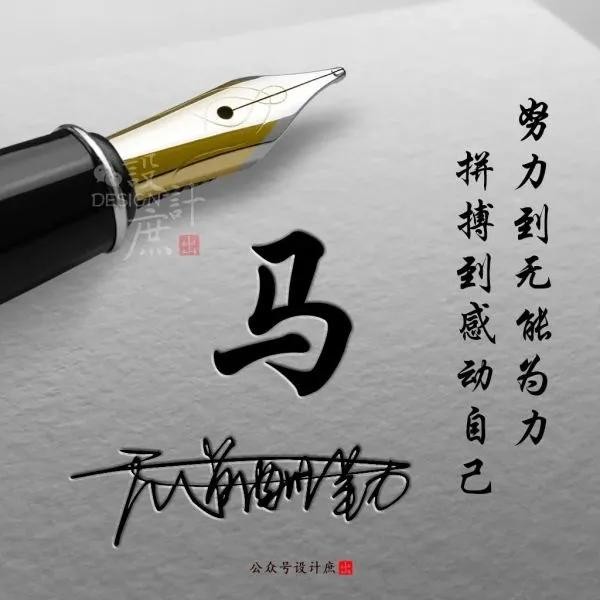 努力到无能为力
拼搏到感动自己
設計
DESIGN
庶
马
天道酬勤
公众号设计庶